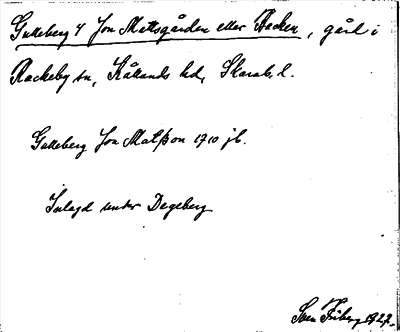 Gutteberg 4 Jon Mattsgården eller Backen, gård i
Rackeby sn, Kållands hd, Skarab. l.
Gutteberg Jon Matsson 1710 jb.
Inlagd under Degeberg
Sven Friberg 1927.